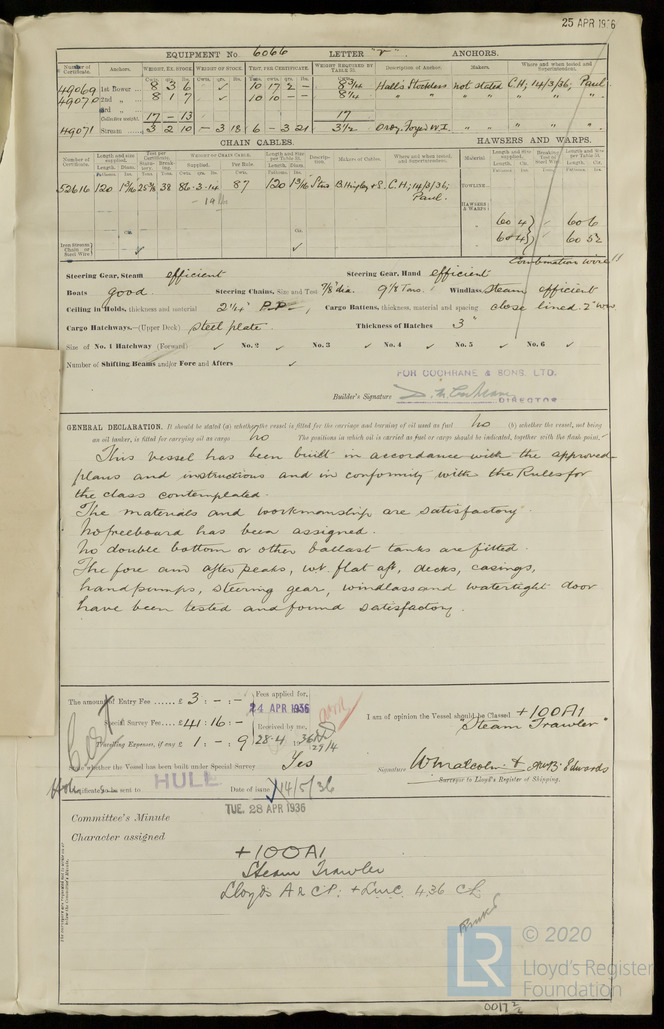 25 APR 1936
EQUIPMENT No. 6066 LETTER "r" ANCHORS.
Number of Certificate. Anchors. WEIGHT, EX. STOCK WEIGHT OF STOCK. TEST, PER CERTIFICATE WEIGHT REQUIRED BY TABLE 31. Description of Anchor. Makers. Where and when tested and Superintendent.
Cwts. qrs. lbs. Cwts. qrs. lbs. Tons. cwts. qrs. lbs. Cwts.
49069 1st Bower 8 3 6 ✓ 10 17 2 – 8¾ Hall's Stockless not stated C.H; 14/3/36; Paul.
49070 2nd „ 8 1 7 ✓ 10 10 – – 8¼ " " " " " "
3rd „
Collective weight 17 – 13 17
49071 Stream 3 2 10 – 3 18 6 – 3 21 3½ Ordy. Forged W.I. " " " "
CHAIN CABLES. HAWSERS AND WARPS.
Number of Certificate. Length and size supplied. Test per Certificate. WEIGHT OF CHAIN CABLE. Length and Size per Table 31. Description. Makers of Cables. Where and when tested and Superintendent. Material. Length and Size supplied. Breaking Test of Steel Wire. Length and Size per Table 31.
Supplied. Per Rule.
52616 120 1 3/16 25 3/8 38 86-3-14 87 120 1 3/16 Stud B. Hingley & S. C.H; 14/3/36; Paul.
TOWLINE
HAWSERS & WARPS
60 4 60 6
60 4 60 5½
Iron Stream Chain or Steel Wire ✓ ✓
Combination wire
Steering Gear, Steam efficient Steering Gear, Hand efficient
Boats good Steering Chains, Size and Test 7/8" dia. 9 1/8 Tons. Windlass Steam efficient
Ceiling in Holds, thickness and material 2¼" P.P. Cargo Battens, thickness, material and spacing close lined 2"
Cargo Hatchways.—(Upper Deck) steel plate. Thickness of Hatches 3"
Size of No. 1 Hatchway (Forward) ✓ No. 2 ✓ No. 3 ✓ No. 4 ✓ No. 5 ✓ No. 6 ✓
Number of Shifting Beams and/or Fore and Afters ✓
FOR COCHRANE & SONS. LTD.
Builder's Signature D. M. Cochrane
DIRECTOR
GENERAL DECLARATION. It should be stated (a) whether the vessel is fitted for the carriage and burning of oil used as fuel No (b) whether the vessel, not being
an oil tanker, is fitted for carrying oil as cargo No The positions in which oil is carried as fuel or cargo should be indicated, together with the flash point.
This vessel has been built in accordance with the approved
plans and instructions and in conformity with the Rules for
the class contemplated.
The materials and workmanship are satisfactory.
No freeboard has been assigned.
No double bottom or other ballast tanks are fitted.
The fore and after peaks, wt. flat aft, decks, casings,
hand pumps, steering gear, windlass and watertight door
have been tested and found satisfactory.
The amount of Entry Fee ...... £ 3 : - : - Fees applied for,
24 APR 1936
Special Survey Fee.... £ 41 : 16 : - Received by me,
Travelling Expenses, if any £ 1 : - : 9 28-4 1936
29/4
I am of opinion the Vessel should be Classed +100A1
"Steam Trawler"
State whether the Vessel has been built under Special Survey Yes
Signature W Malcolm & A.W.B. Edwards
Surveyor to Lloyd's Register of Shipping.
Certificate to be sent to HULL Date of issue 14/5/36
TUE. 28 APR 1936
Committee's Minute
Character assigned
+100A1
Steam Trawler
Lloyds A & CP. + LMC 4.36 CL
LR
© 2020
Lloyd's Register
Foundation